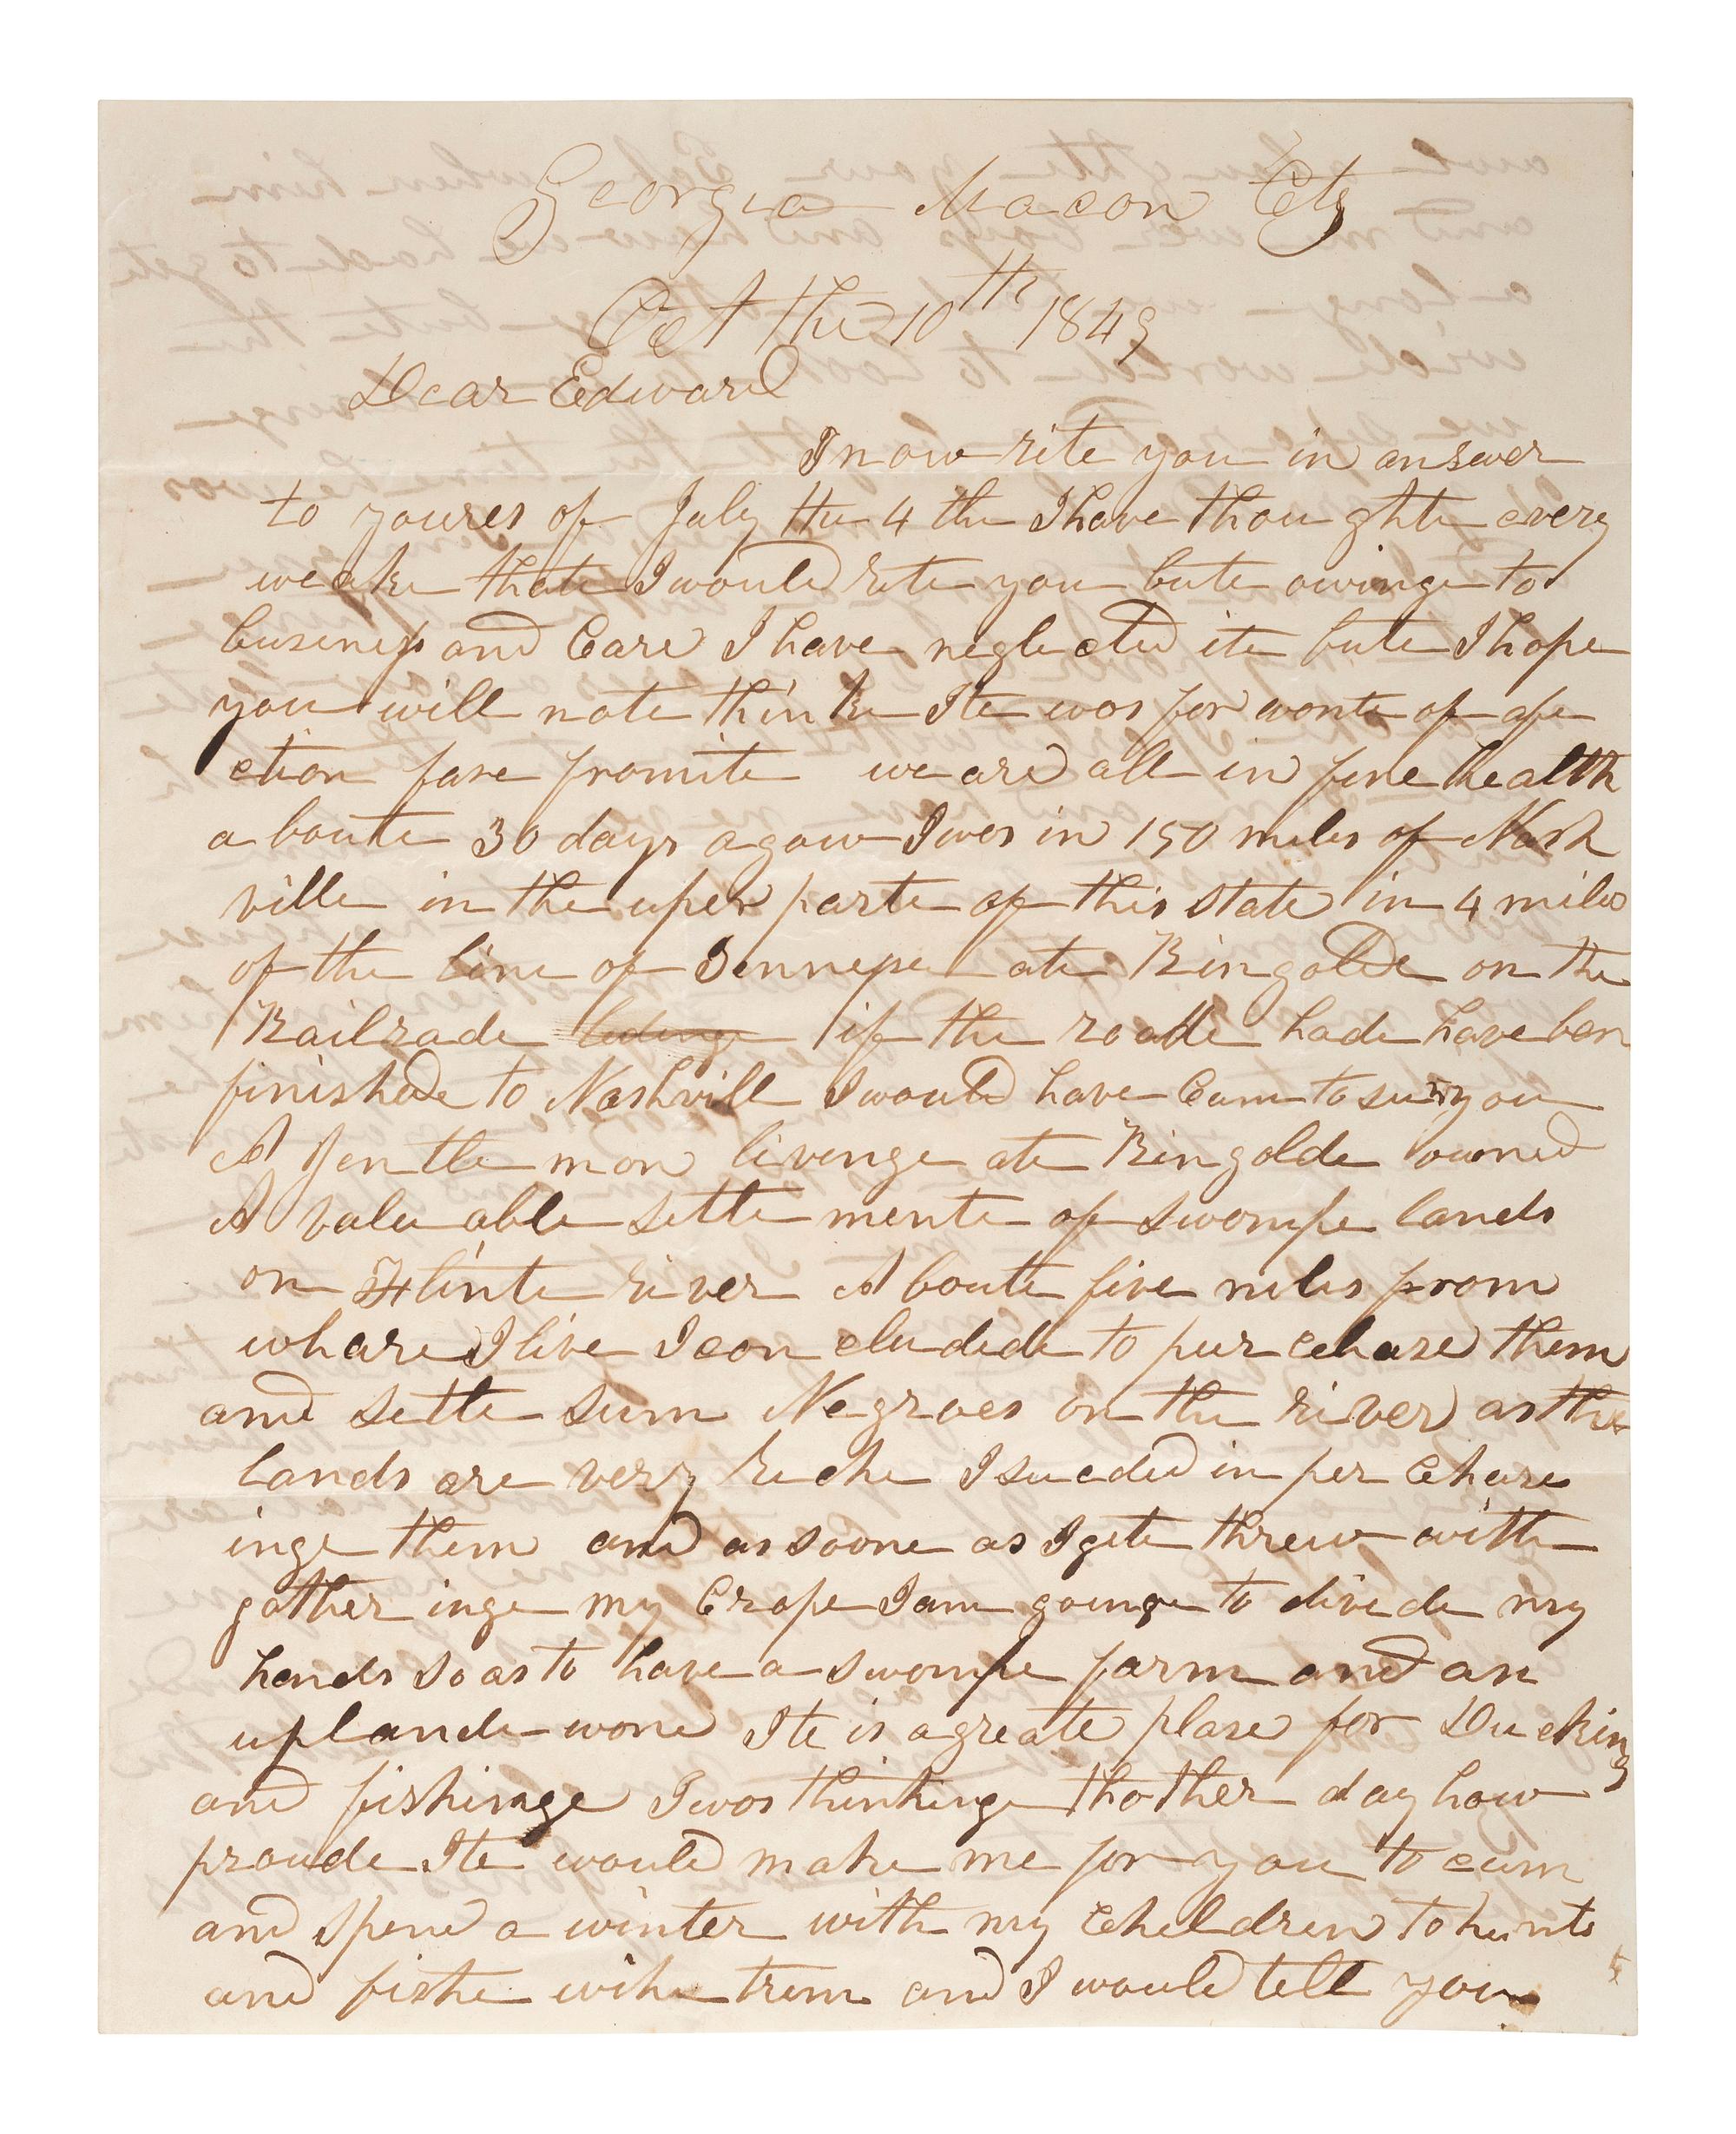 Georgia Macon Cty
Oct the 10th 1849
Dear Edward
I now rite you in answer
to youres of July the 4 the I have thoughte every
weake thate I would rite you bute owinge to
business and Care I have neglected ite bute I hope
you will note thinke Ite wos for wonte of afe
ction fare fromite we are all in fine health
a boute 30 days agow I wos in 150 miles of Nash
ville in the uper parte of this state in 4 miles
of the line of Tennessee ate Ringolde on the
Railrade if the roade hade have ben
finishede to Nashvill I would have Cum to see you
A Gentle mon livenge ate Ringolde owned
A valu able settle mente of swompe lands
on Flinte river A boute five miles from
whare I live I con cludede to pur chase them
and settle sum Negroes on the river as the
lands are very riche I suceded in per Chase
inge them and as soone as I gete threw with
gather inge my Crope I am goinge to divide my
hands so as to have a swompe farm and an
uplande wone Ite is a greate plase for Ducking
and fishinge I wos thinkinge thother day how
proude Ite would make me for you to cum
and spend a winter with my Children to hunte
and fishe withe trem and I would tell you